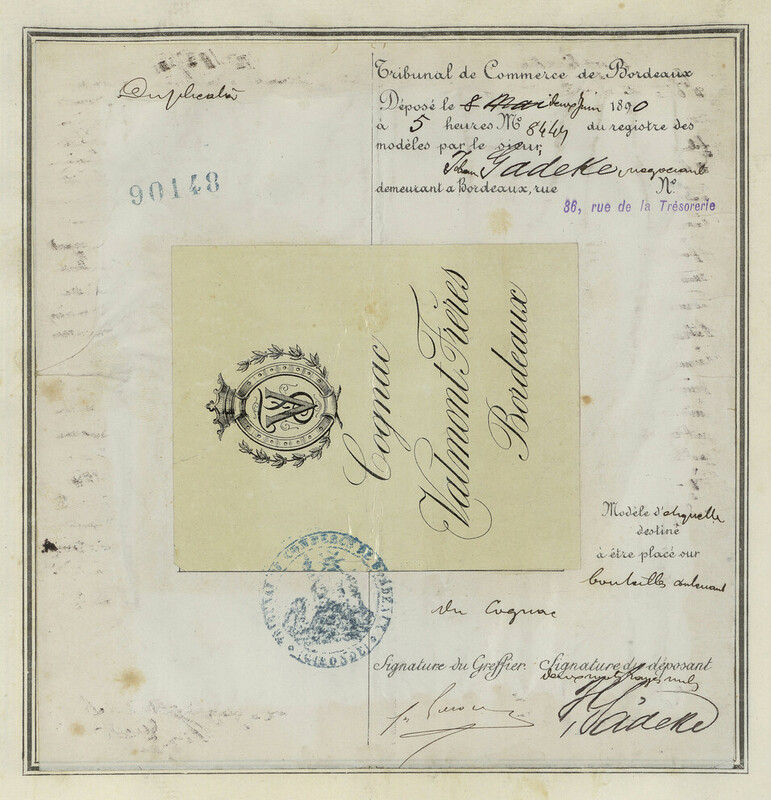 Duplicata
90148
Tribunal de Commerce de Bordeaux
Déposé le 8 Mai deux Juin 1890
à 5 heures Nº 8444 du registre des
modèles par le sieur,
Gädeke, négociant
demeurant à Bordeaux, rue Nº
86, rue de la Trésorerie
Cognac
Valmont Frères
Bordeaux
Modèle d'étiquette
destiné
à être placé sur
bouteilles contenant
du Cognac
TRIBUNAL DE COMMERCE DE BORDEAUX
(GIRONDE)
Signature du Greffier. Signature du déposant
deux mots rayés nuls
Gädeke